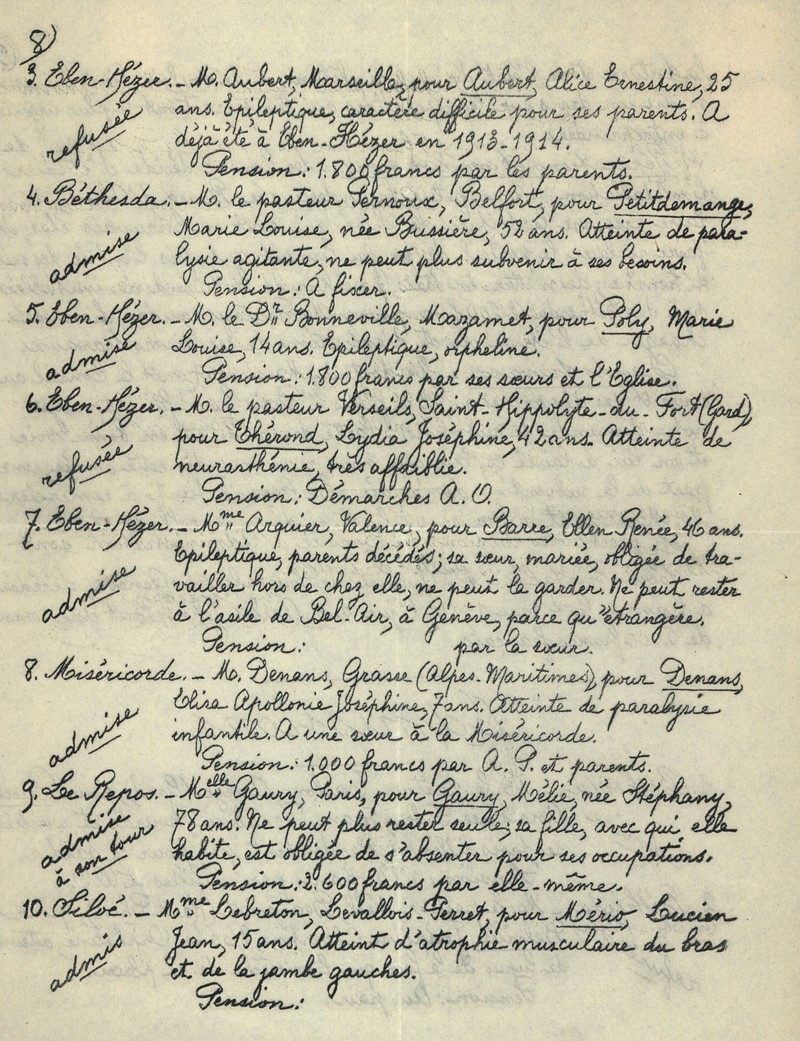 8)
3. Eben-Hézer. - M. Aubert, Marseille, pour Aubert, Alice Ernestine, 25
refusée
ans. Epileptique, caractère difficile pour ses parents. A
déjà été à Eben-Hézer en 1913-1914.
Pension: 1.800 francs par les parents.
4. Béthesda. - M. le pasteur Pernoux, Belfort, pour Petitdemange,
admise
Marie Louise, née Bussière, 52 ans. Atteinte de para-
lysie agitante, ne peut plus subvenir à ses besoins.
Pension: A fixer.
5. Eben-Hézer. - M. le Dr Bonneville, Mazamet, pour Poly, Marie
admise
Louise, 14 ans. Epileptique, orpheline.
Pension: 1.800 francs par ses sœurs et l'Eglise.
6. Eben-Hézer. - M. le pasteur Verseils, Saint-Hippolyte-du-Fort (Gard),
refusée
pour Thérond, Lydia Joséphine, 42 ans. Atteinte de
neurasthénie, très affaiblie.
Pension: Démarches A. O.
7. Eben-Hézer. - Mme Arquier, Valence, pour Barre, Ellen Renée, 46 ans.
admise
Epileptique, parents décédés; sa sœur, mariée, obligée de tra-
vailler hors de chez elle, ne peut la garder. Ne peut rester
à l'asile de Bel-Air, à Genève, parce qu'étrangère.
Pension: par la sœur.
8. Miséricorde. - M. Denans, Grasse (Alpes-Maritimes), pour Denans,
admise
Elisa Apollonie Joséphine, 7 ans. Atteinte de paralysie
infantile. A une sœur à la Miséricorde.
Pension: 1.000 francs par A. P. et parents.
9. Le Repos. - Melle Gaury, Paris, pour Gaury, Mélie, née Stéphany,
admise
à son tour
78 ans. Ne peut plus rester seule; sa fille, avec qui elle
habite, est obligée de s'absenter pour ses occupations.
Pension: 2.600 francs par elle-même.
10. Siloé. - Mme Lebreton, Levallois-Perret, pour Mério, Lucien
admis
Jean, 15 ans. Atteint d'atrophie musculaire du bras
et de la jambe gauches.
Pension: